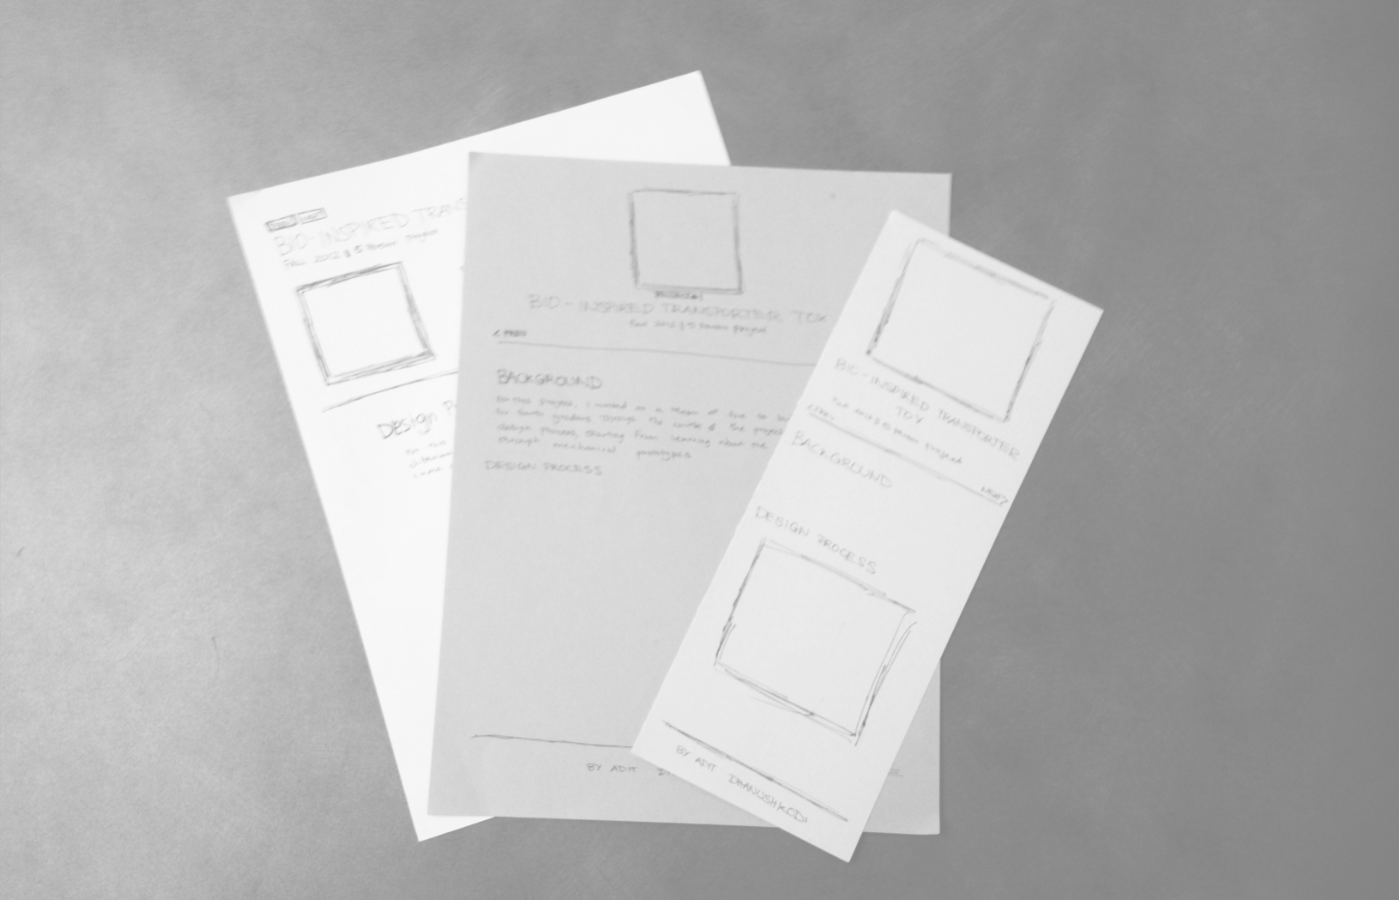 BIO-INSPIRED TRANS
FALL 2012 | 5 Person Project
DESIGN P
BIO-INSPIRED TRANSPORTER TOY
Fall 2012 | 5 Person Project
< PREV
BACKGROUND
For this project, I worked on a team of five to
for fourth graders through the course of the project
design process, starting from learning about the
through mechanical prototypes
DESIGN PROCESS
BY ADIT
BIO-INSPIRED TRANSPORTER
TOY
Fall 2012 | 5 person project
< PREV
NEXT >
BACKGROUND
DESIGN PROCESS
BY ADIT DHANUSHKODI